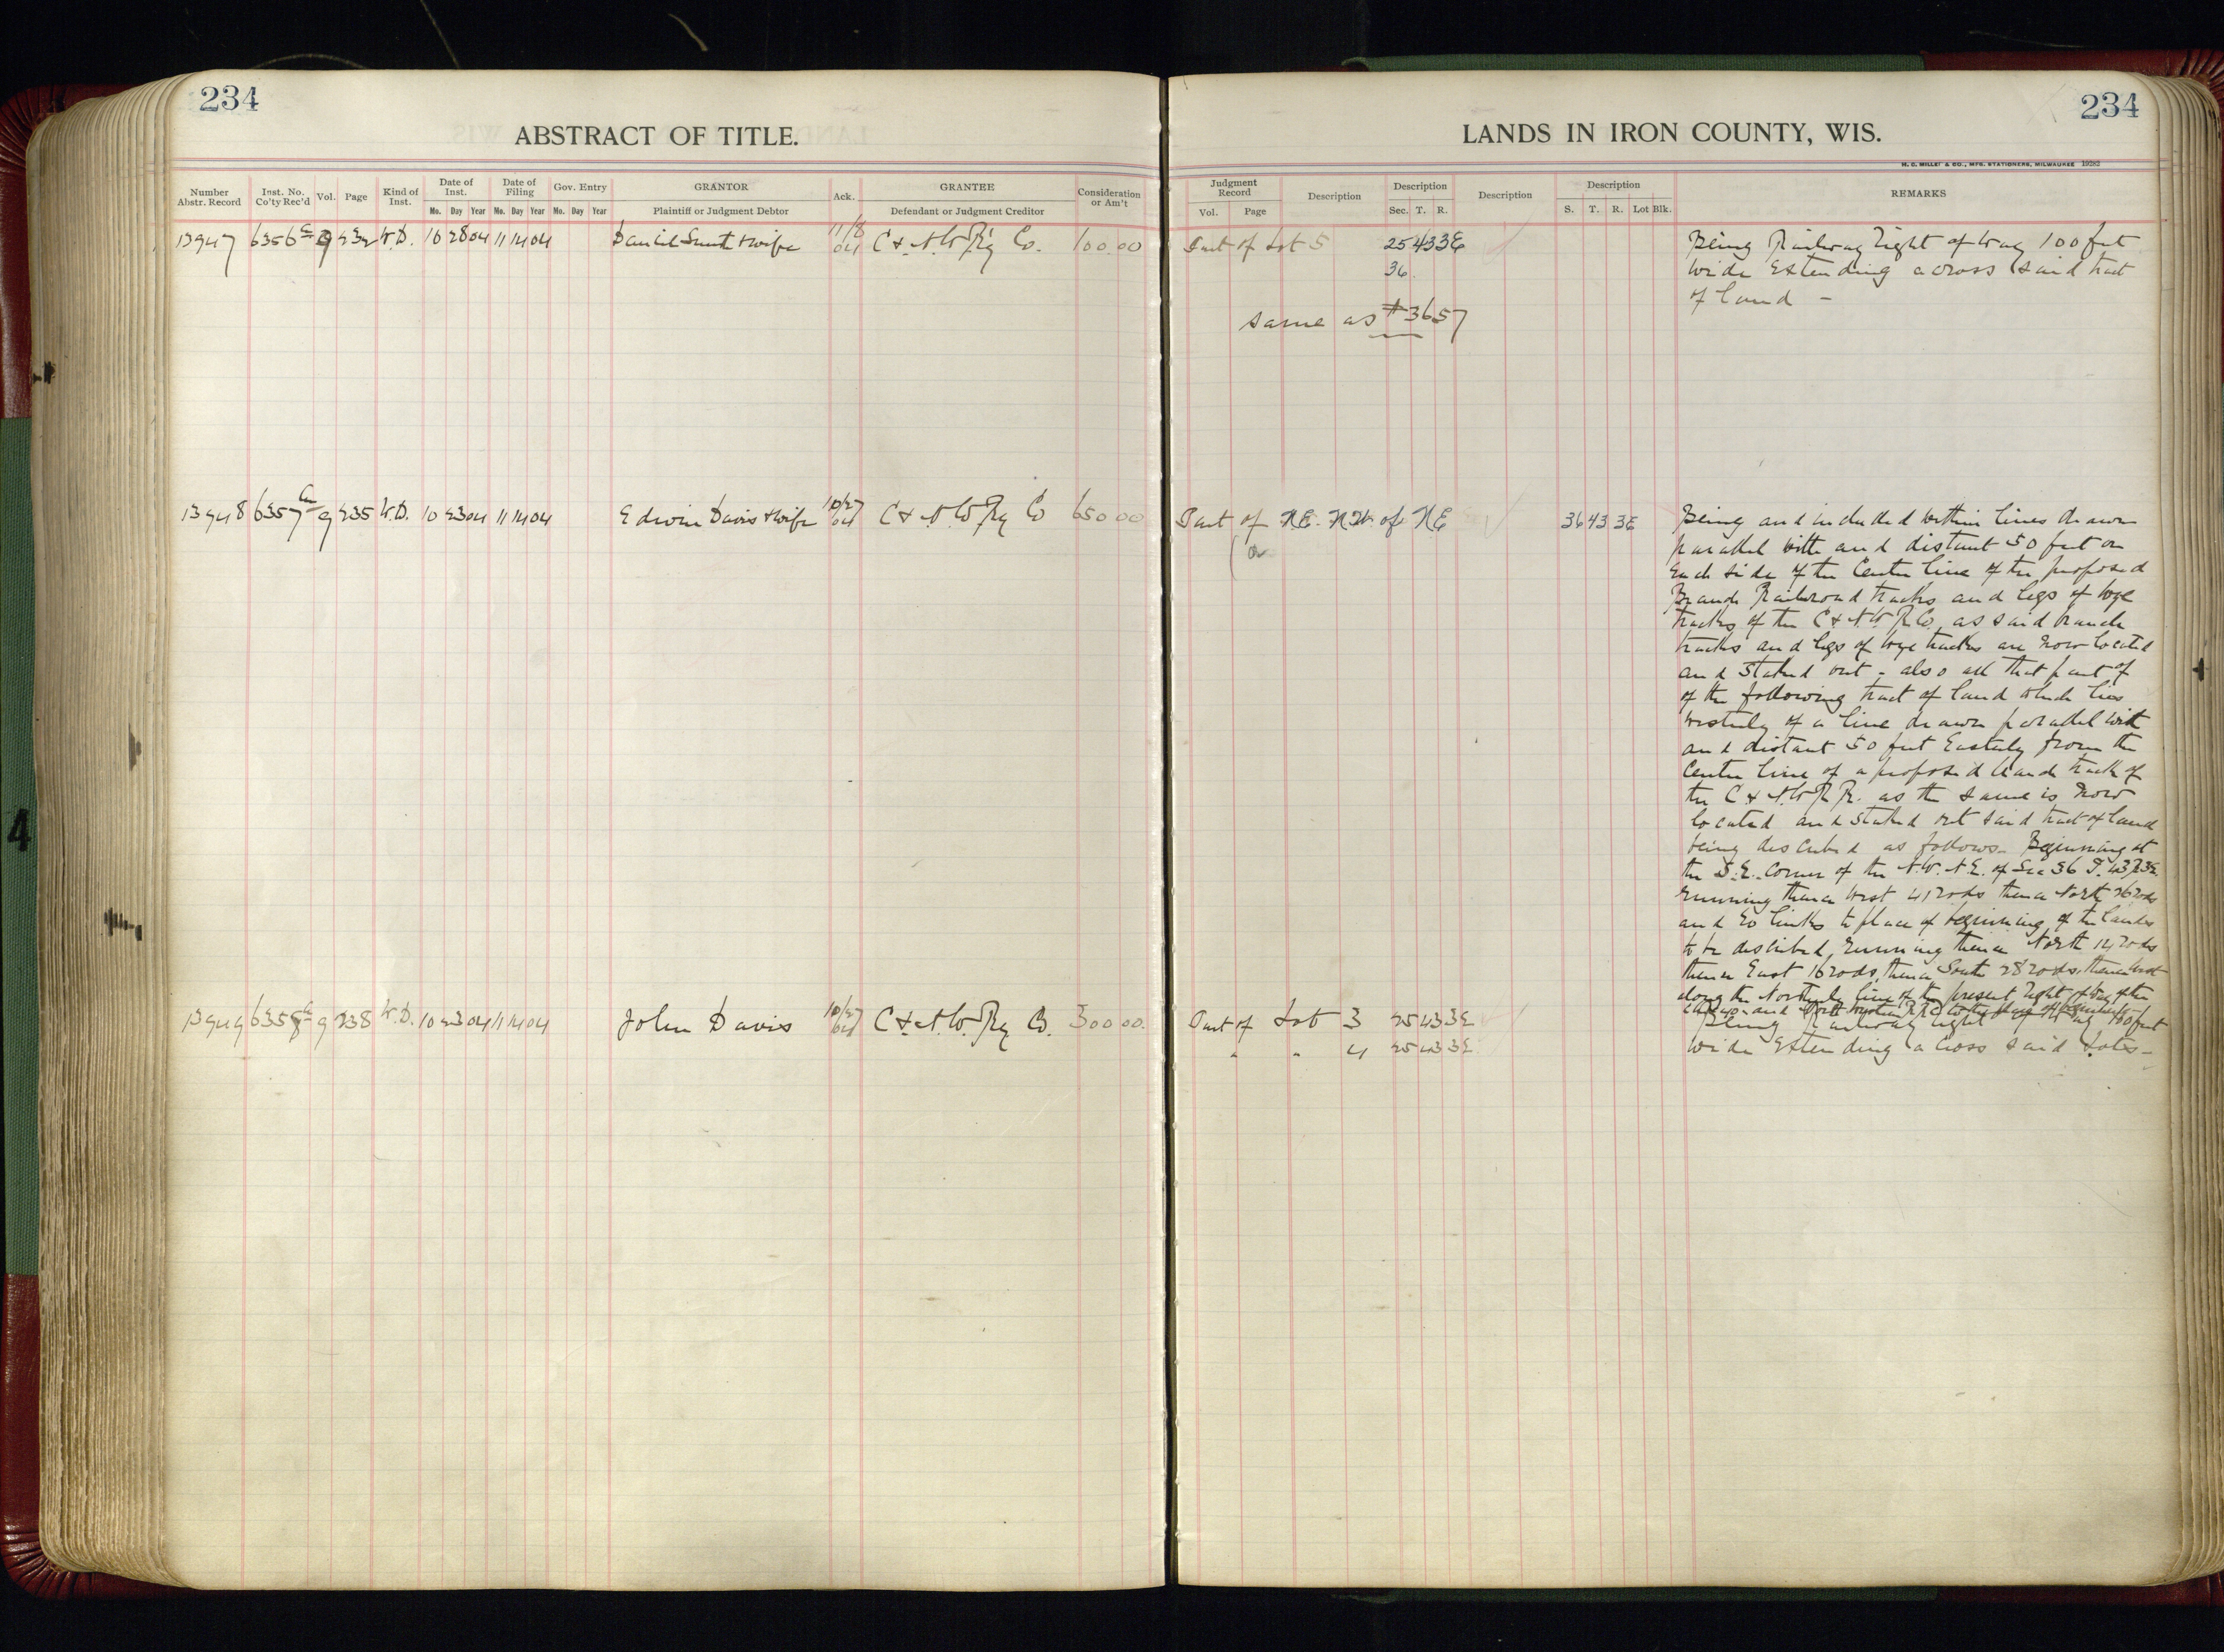 234
ABSTRACT OF TITLE.
Number Abstr. Record Inst. No. Co'ty Rec'd Vol. Page Kind of Inst. Date of Inst. Date of Filing Gov. Entry GRANTOR Ack. GRANTEE Consideration or Am't
Mo. Day Year Mo. Day Year Mo. Day Year Plaintiff or Judgment Debtor Defendant or Judgment Creditor
13947 6356 9 232 W.D. 10 28 04 11 14 04 Daniel Smith & wife 11/8 04 C & N. W. Ry Co. 100.00
13948 6357 9 235 W.D. 10 23 04 11 14 04 Edwin Davis & wife 10/27 04 C & N. W Ry Co 650 00
13949 6358 9 238 W.D. 10 23 04 11 14 04 John Davis 10/27 04 C & N. W. Ry Co. 300 00.
234
LANDS IN IRON COUNTY, WIS.
H. C. MILLER CO., MFG. STATIONERS, MILWAUKEE
Judgment Record Description Description Description Description REMARKS
Vol. Page Sec. T. R. S. T. R. Lot Blk.
Part of Lot 5 25 43 3E Being Railway Right of Way 100 feet
36. wide Extending across said tract
of land -
same as #3657
Part of NE. NW. of NE 36 43 3E Being and included within lines drawn
parallel with and distant 50 feet on
Each side of the Center line of the proposed
Branch Railroad tracks and legs of wye
tracks of the C & N. W R. Co. as said branch
tracks and legs of wye tracks are now located
and staked out - also all that part of
of the following tract of land which lies
westerly of a line drawn parallel with
and distant 50 feet Easterly from the
Center line of a proposed branch track of
the C & N. W R R. as the same is now
located and staked out said tract of land
being described as follows - Beginning at
the S.E. Corner of the N.W. N.E. of Sec 36 T. 43 R 3E.
running thence West 41 rods thence North 26 rods
and 20 links to place of beginning of the lands
to be described, running thence North 14 rods
thence East 16 rods, thence South 28 rods, thence West
along the Northerly line of the present Right of Way of the
Part of Lot 3 25 43 3E Being Railway Right of Way 100 feet
" " 4 25 43 3E wide Extending across said Lots -